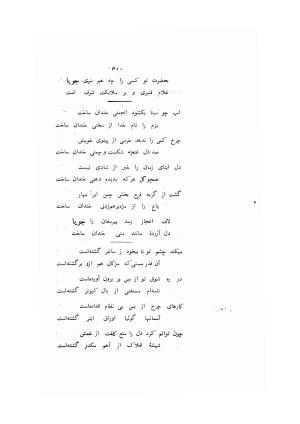 -۳۰۰-
بحضرت تو کسی را چه هم سری جویا
غلام قنبری و بر ملایکت شرف است
لب چو مینا بگشود انجمنی خندان ساخت
بزم را نام خدا از سخنی خندان ساخت
چرخ کس را ندهد خرمی از پهلوی خویش
صد دل غنچه شکست و چمنی خندان ساخت
دل ابنای زمان را خبر از شادی نیست
همچو گل هر که بدیدم دهنی خندان ساخت
گشت از گریه فرح بخش چمن ابر بهار
باغ را از مژه برهم‌زدنی خندان ساخت
لاف اعجاز رسد بیر جویا
دل آزرده مانند منی خندان ساخت
میکند چشم تو تا بیخود ز ساغر گشته‌است
آن قدر مستی که مژگان هم ازو برگشته‌است
در ره شوق تو از بس پر برون آورده‌است
نامه‌ام مستغنی از بال کبوتر گشته‌است
کارهای چرخ از بس بی نظام افتاده‌است
آسمانها گوئیا اوراق ابتر گشته‌است
چون توانم کرد دل را منع کلفت از غمش
شیشهٔ افلاک از آهم مکدر گشته‌است